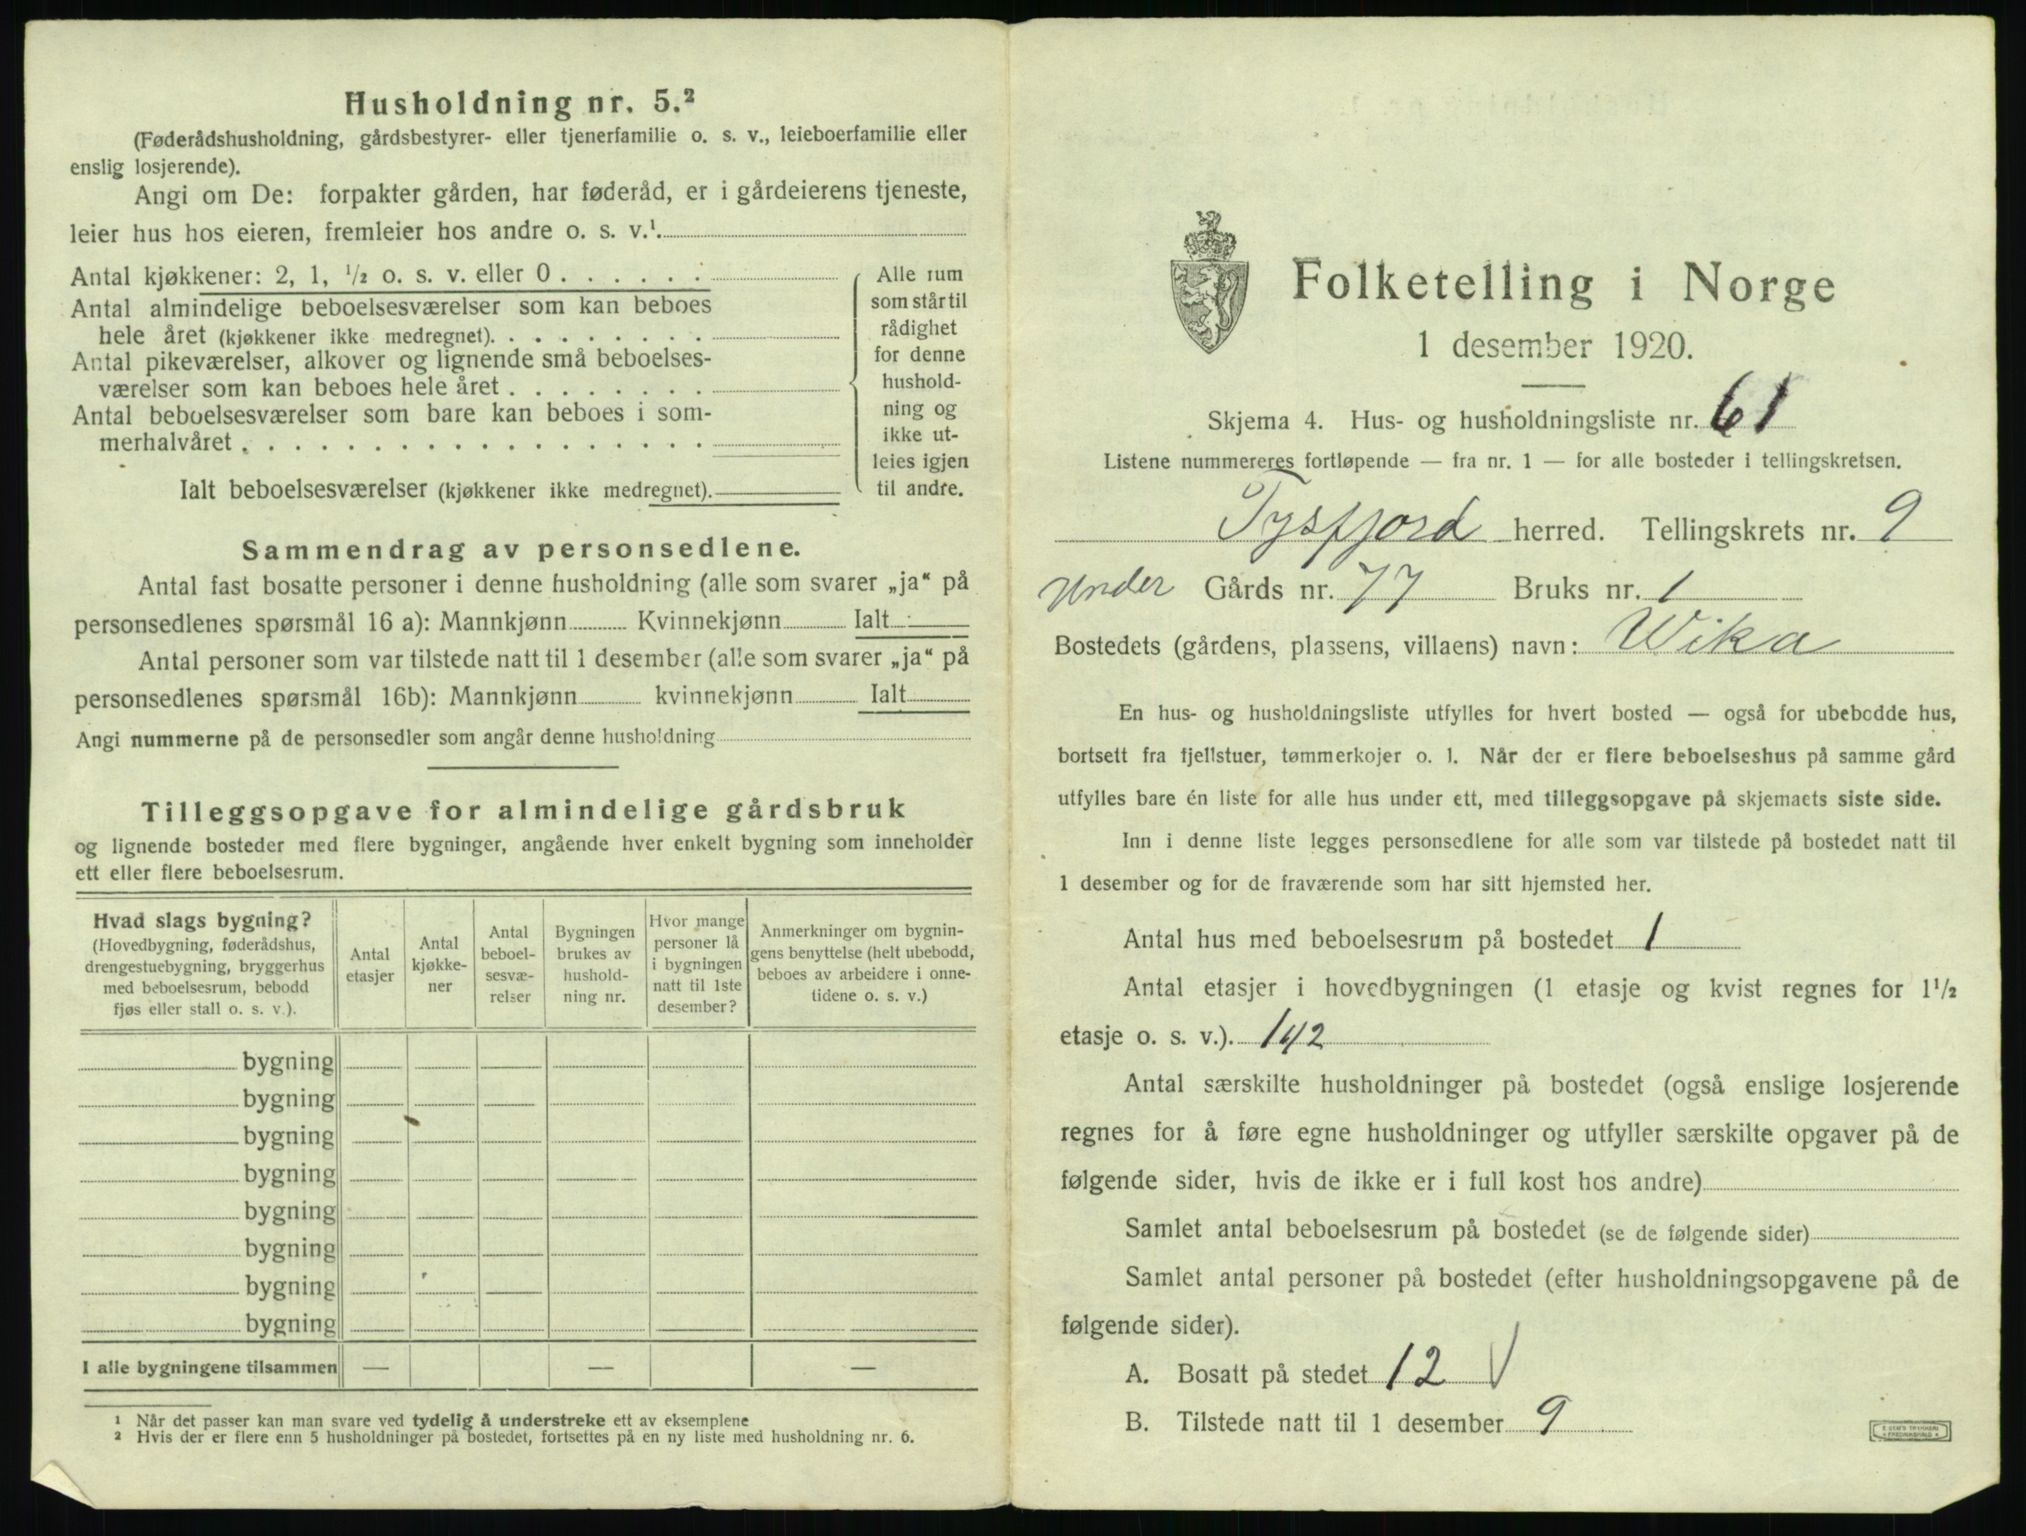 Husholdning nr. 5.²
(Føderådshusholdning, gårdsbestyrer- eller tjenerfamilie o. s. v., leieboerfamilie eller
enslig losjerende).
Angi om De: forpakter gården, har føderåd, er i gårdeierens tjeneste,
leier hus hos eieren, fremleier hos andre o. s. v.¹.
Antal kjøkkener: 2, 1, ½ o. s. v. eller 0 . . . . . .
Antal almindelige beboelsesværelser som kan beboes
hele året (kjøkkener ikke medregnet). . . . . . . . .
Antal pikeværelser, alkover og lignende små beboelses-
værelser som kan beboes hele året . . . . . . . .
Antal beboelsesværelser som bare kan beboes i som-
merhalvåret . . . . . . . . . . . . . . . . . .
Ialt beboelsesværelser (kjøkkener ikke medregnet).
Alle rum
som står til
rådighet
for denne
hushold-
ning og
ikke ut-
leies igjen
til andre.
Sammendrag av personsedlene.
Antal fast bosatte personer i denne husholdning (alle som svarer „ja“ på
personsedlenes spørsmål 16 a): Mannkjønn Kvinnekjønn Ialt
Antal personer som var tilstede natt til 1 desember (alle som svarer „ja“ på
personsedlenes spørsmål 16b): Mannkjønn kvinnekjønn Ialt
Angi nummerne på de personsedler som angår denne husholdning
Tilleggsopgave for almindelige gårdsbruk
og lignende bosteder med flere bygninger, angående hver enkelt bygning som inneholder
ett eller flere beboelsesrum.
Hvad slags bygning?
(Hovedbygning, føderådshus,
drengestuebygning, bryggerhus
med beboelsesrum, bebodd
fjøs eller stall o. s. v.).
Antal
etasjer
Antal
kjøkke-
ner
Antal
beboel-
sesvæ-
relser
Bygningen
brukes av
hushold-
ning nr.
Hvor mange
personer lå
i bygningen
natt til 1ste
desember?
Anmerkninger om bygnin-
gens benyttelse (helt ubebodd,
beboes av arbeidere i onne-
tidene o. s. v.)
bygning
bygning
bygning
bygning
bygning
bygning
bygning
bygning
I alle bygningene tilsammen — — —
¹ Når det passer kan man svare ved tydelig å understreke ett av eksemplene
² Hvis der er flere enn 5 husholdninger på bostedet, fortsettes på en ny liste med husholdning nr. 6.
Folketelling i Norge
1 desember 1920.
Skjema 4. Hus- og husholdningsliste nr. 61
Listene nummereres fortløpende — fra nr. 1 — for alle bosteder i tellingskretsen.
Tysfjord herred. Tellingskrets nr. 9
under Gårds nr. 77 Bruks nr. 1
Bostedets (gårdens, plassens, villaens) navn: Wika
En hus- og husholdningsliste utfylles for hvert bosted — også for ubebodde hus,
bortsett fra fjellstuer, tømmerkojer o. l. Når der er flere beboelseshus på samme gård
utfylles bare én liste for alle hus under ett, med tilleggsopgave på skjemaets siste side.
Inn i denne liste legges personsedlene for alle som var tilstede på bostedet natt til
1 desember og for de fraværende som har sitt hjemsted her.
Antal hus med beboelsesrum på bostedet 1
Antal etasjer i hovedbygningen (1 etasje og kvist regnes for 1½
etasje o. s. v.). 1 1/2
Antal særskilte husholdninger på bostedet (også enslige losjerende
regnes for å føre egne husholdninger og utfyller særskilte opgaver på de
følgende sider, hvis de ikke er i full kost hos andre)
Samlet antal beboelsesrum på bostedet (se de følgende sider)
Samlet antal personer på bostedet (efter husholdningsopgavene på de
følgende sider).
A. Bosatt på stedet 12 V
B. Tilstede natt til 1 desember 9